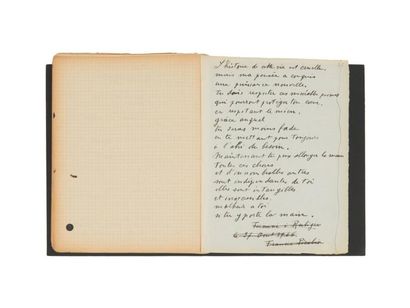 L'histoire de cette vie est cruelle
mais ma pensée a conquis
une puissance nouvelle,
tu dois respecter ces
qui pourront protéger ton
en respectant le mien,
grâce auquel
tu seras moins fade
en te mettant pour toujours
à l'abri du besoin.
Maintenant tu peux allonger la main
Toutes ces choses
et d'innombrables autres
sont indépendantes de toi
elles sont intangibles
et
malheur à toi
si tu y portes la main.
Francis